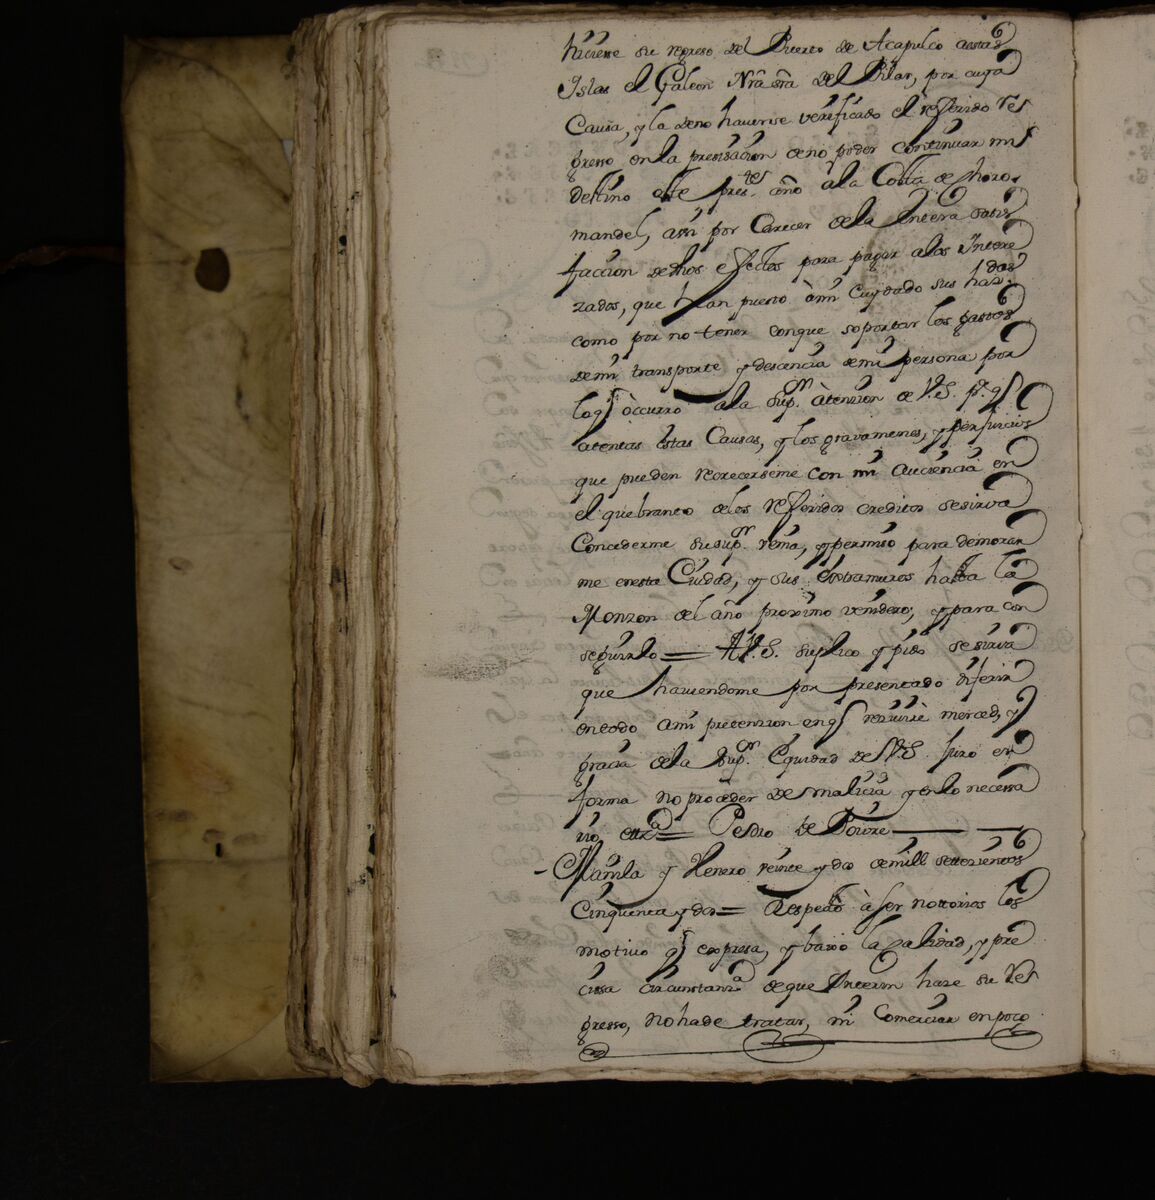 hiciesse su regreso del Puerto de Acapulco aestas
Yslas el Galeon Nrâ srâ del Pilar, por cuya
Causa, y la deno haverse verificado el refferido res
gresso, en la presisâcion deno poder continuar mi
destino este pres.te año â la Costa de Choro,
mandel, assi por Carecer dela Entera satis
faccion de dhos effectos para pagar alos Yntere
zados, que han puesto â mi cuydado sus haz.das
como por no tener conque soportar los gastos
demi transporte y descencia demi persona por
loq̃ òccurro ala Sup.or âtenzion de V.S. p.a q̃
atentas estas Causas, y los gravamenes, y perjuicios
que pueden recrecerseme con mi auciencia en
el quebranto delos refferidos creditos sesirva
Concederme su sup.or venia, y permiso para demorar
me enesta Ciudad, y sus Extramuros hasta la
Monzon del año proximo venidero; y para con
seguirlo = A V.S. suplico y pido se sirva
que haviendome por presentado diferir
entodo a mi pretenzion enq̃ recivirè merced, y
gracia dela Sup.or Equidad de V.S. Juro en
forma no proceder de malicia y enlo necessa
rio ettz.a = Pedro de
Manila y Henero veinte y dos demill settecientos
Cinquenta, y dos = Respecto â ser nottorios los
motivo q̃ expresa, y baxo la calidad, y pre
cissa circunstanz.a de que Ynterin haze su res
gresso, no hade tratar, ni Comerciar en poco